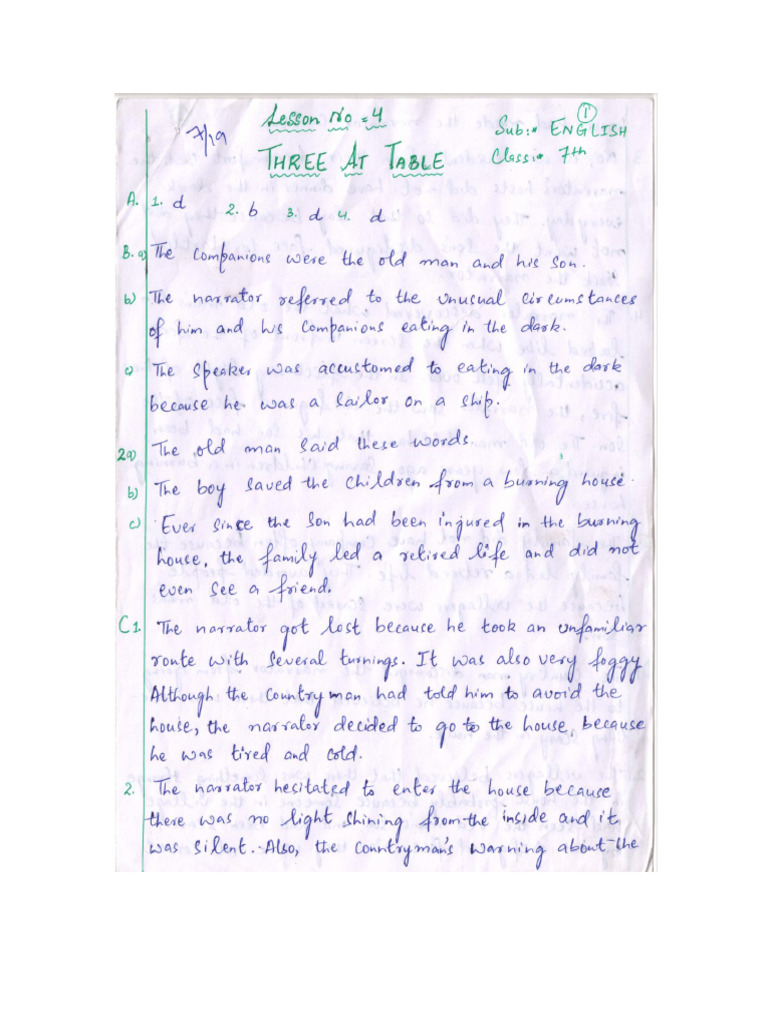 Lesson No = 4
①
7/19
Sub:* ENGLISH
THREE AT TABLE
Class:* 7th
A. 1. d 2. b 3. d 4. d
B. a) The companions were the old man and his son.
b) The narrator referred to the unusual circumstances
of him and his companions eating in the dark.
c) The speaker was accustomed to eating in the dark
because he was a sailor on a ship.
2a) The old man said these words.
b) The boy saved the children from a burning house.
c) Ever since the son had been injured in the burning
house, the family led a retired life and did not
even see a friend.
C1. The narrator got lost because he took an unfamiliar
route with several turnings. It was also very foggy
Although the countryman had told him to avoid the
house, the narrator decided to go to the house, because
he was tired and cold.
2. The narrator hesitated to enter the house because
there was no light shining from the inside and it
was silent. Also, the countryman's warning about the